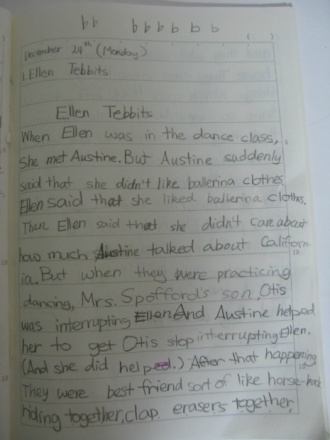 b b b b b b b b
( )
December 24th (Monday)
1. Ellen Tebbits
Ellen Tebbits
When Ellen was in the dance class,
She met Austine. But Austine suddenly
said that she didn't like ballerina clothes.
Ellen said that she liked ballerina clothes.
Then Ellen said that she didn't care about
how much Austine talked about Californ-
ia. But when they were practicing
dancing, Mrs. Spofford's son, Otis
was interrupting Ellen. And Austine helped
her to get Otis stop interrupting Ellen.
(And she did help.) After that happening
They were best friend sort of like horse-back
riding together, clap erasers together,